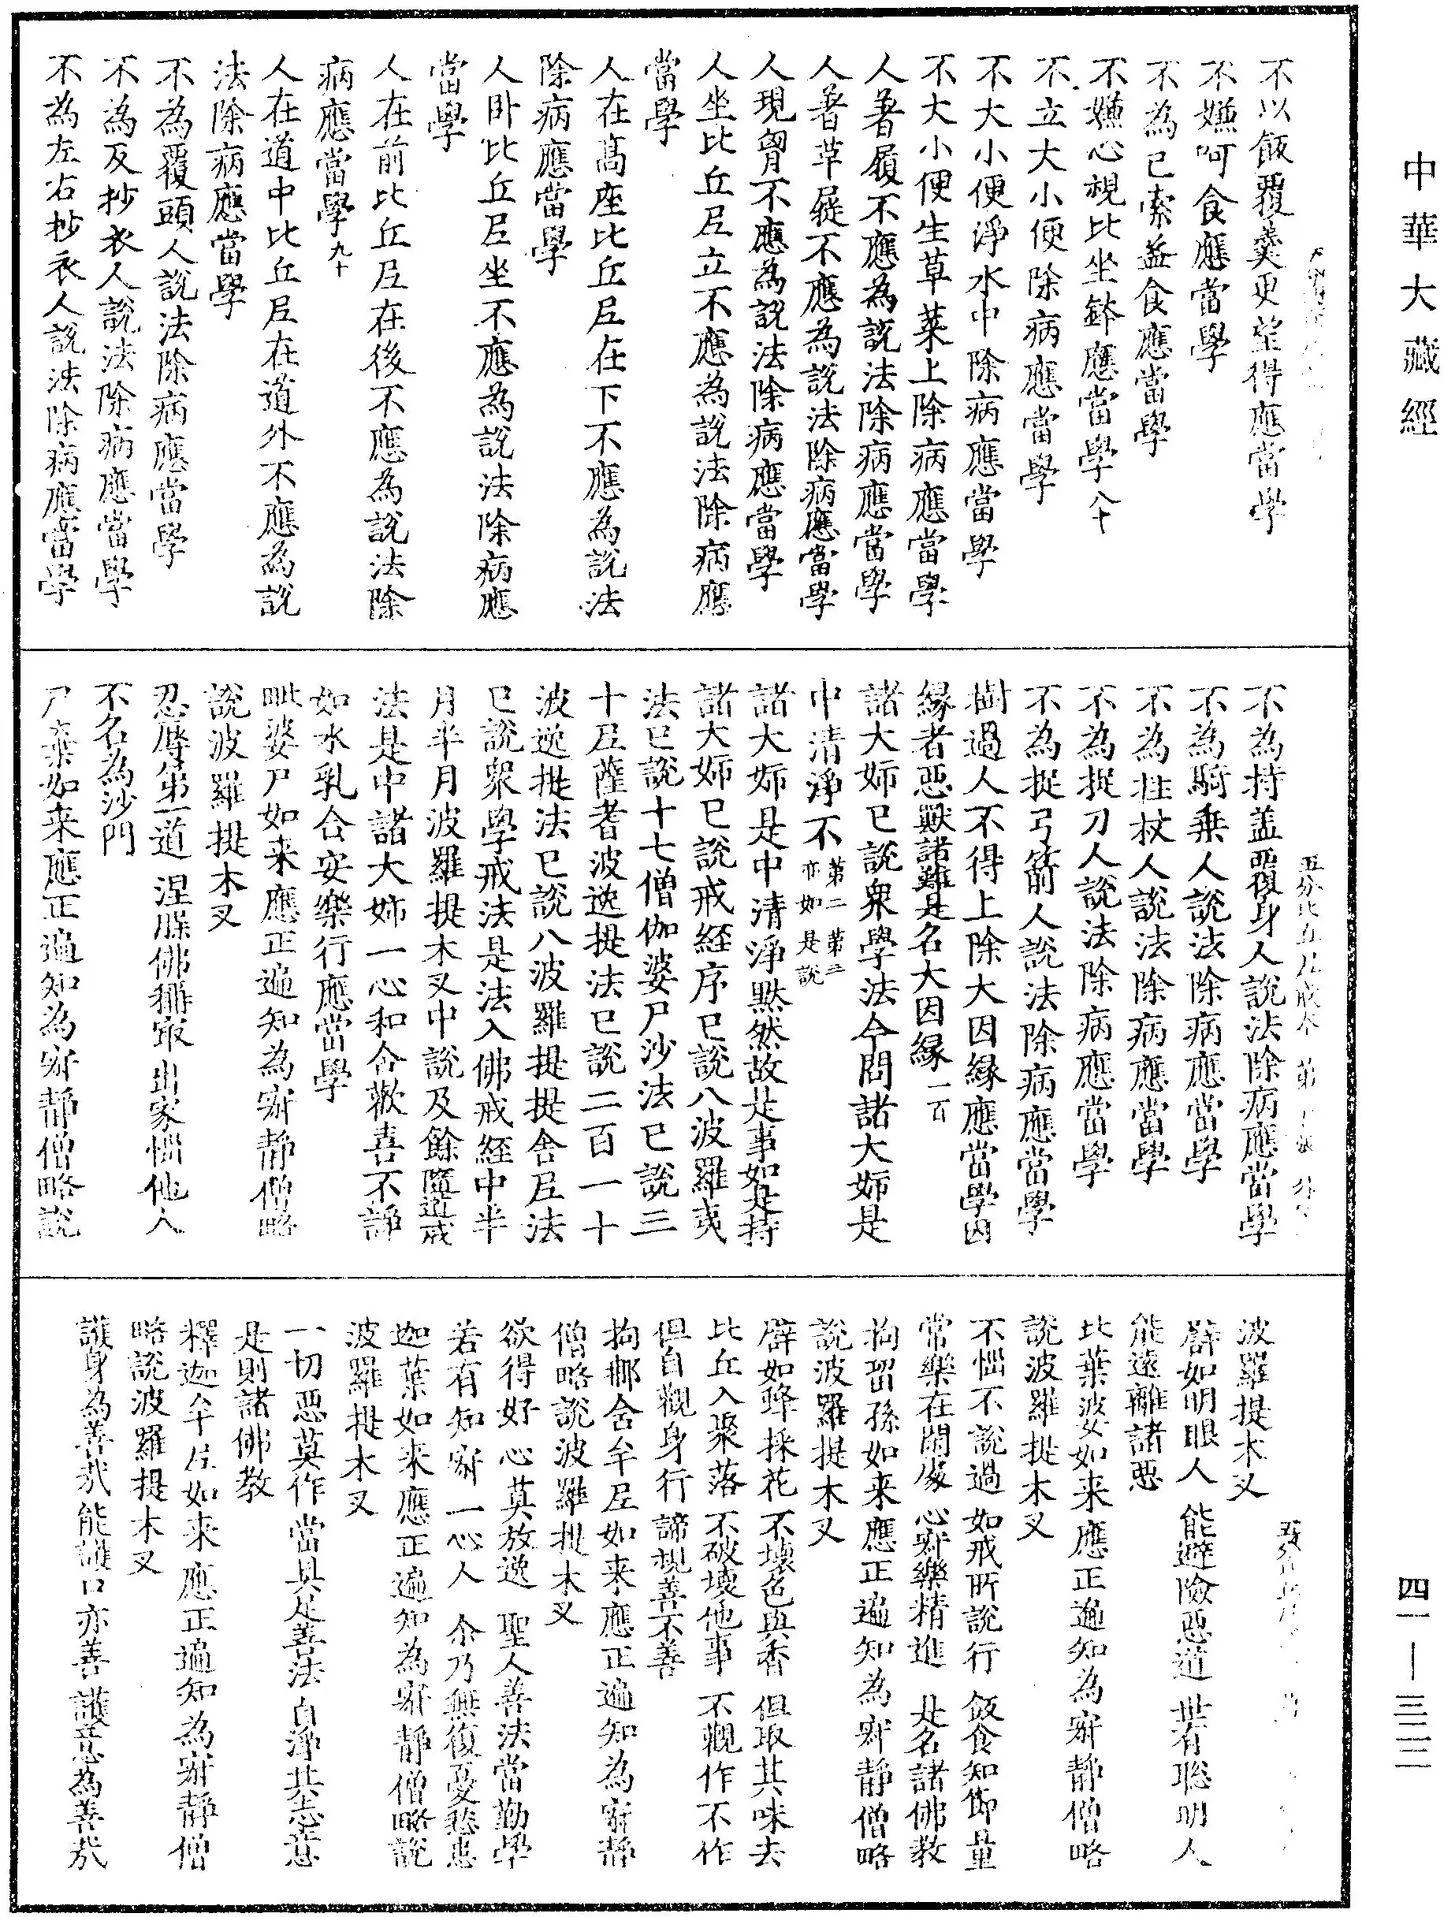 中華大藏經
不以飯覆羹更望得應當學
不嫌呵食應當學
不為已索益食應當學
不嫌心視比坐鉢應當學八十
不立大小便除病應當學
不大小便淨水中除病應當學
不大小便生草菜上除病應當學
人著履不應為說法除病應當學
人著草屣不應為說法除病應當學
人現胷不應為說法除病應當學
人坐比丘尼立不應為說法除病應
當學
人在髙座比丘尼在下不應為說法
除病應當學
人卧比丘尼坐不應為說法除病應
當學
人在前比丘尼在後不應為說法除
病應當學九十
人在道中比丘尼在道外不應為說
法除病應當學
不為覆頭人說法除病應當學
不為反抄衣人說法除病應當學
不為左右抄衣人說法除病應當學
五分比丘尼戒本 第
不為持蓋覆身人說法除病應當學
不為騎乗人說法除病應當學
不為拄杖人說法除病應當學
不為捉刀人說法除病應當學
不為捉弓箭人說法除病應當學
樹過人不得上除大因緣應當學因
緣者惡獸諸難是名大因緣一百
諸大姉已說眾學法今問諸大姉是
中清淨不第二第三亦如是說
諸大姉是中清淨默然故是事如是持
諸大姉已說戒經序已說八波羅夷
法已說十七僧伽婆尸沙法已說三
十尼薩耆波逸提法已說二百一十
波逸提法已說八波羅提提舍尼法
已說眾學戒法是法入佛戒經中半
月半月波羅提木叉中說及餘隨道戒
法是中諸大姉一心和合歡喜不諍
如水乳合安樂行應當學
毗婆尸如来應正遍知為寂静僧略
說波羅提木叉
忍辱第一道 涅槃佛稱冣 出家惱他人
不名為沙門
尸棄如来應正遍知為寂靜僧略說
波羅提木叉
譬如明眼人 能避險惡道 世有聡明人
能遠離諸惡
比葉婆如来應正遍知為寂靜僧略
說波羅提木叉
不惱不說過 如戒所說行 飯食知節量
常樂在閑處 心寂樂精進 是名諸佛教
拘留孫如来應正遍知為寂靜僧略
說波羅提木叉
譬如蜂採花 不壞色與香 但取其味去
比丘入聚落 不破壞他事 不觀作不作
但自觀身行 諦視善不善
拘那含牟尼如来應正遍知為寂靜
僧略說波羅提木叉
欲得好心莫放逸 聖人善法當勤學
若有知寂一心人 尒乃無復憂愁患
迦葉如来應正遍知為寂靜僧略說
波羅提木叉
一切惡莫作 當具足善法 自淨其志意
是則諸佛教
釋迦牟尼如来應正遍知為寂靜僧
略說波羅提木叉
護身為善哉 能護口亦善 護意為善哉
四一—三二二